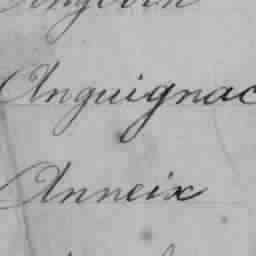 Anguignac
Anneix